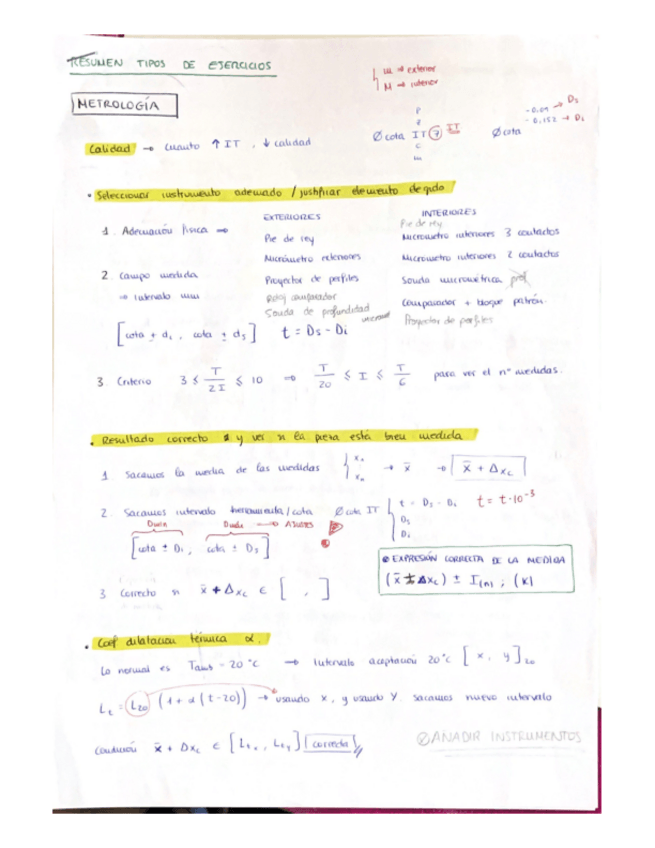 RESUMEN TIPOS DE EJERCICIOS
m → exterior
M → interior
METROLOGÍA
Calidad → Cuanto ↑ IT , ↓ calidad
Ø cota IT 7 IT
Ø cota
-0.01 → Ds
-0.152 → Di
• Seleccionar instrumento adecuado / justificar elemento elegido
EXTERIORES
INTERIORES
1. Adecuación física →
Pie de rey
Pie de rey
Micrómetro interiores 3 contactos
Micrómetro exteriores
Micrómetro interiores 2 contactos
2. Campo medida
Proyector de perfiles
Sonda micrométrica prof
→ intervalo mm
Reloj comparador
Comparador + bloque patrón.
Sonda de profundidad
Proyector de perfiles
[cota ± di , cota ± ds]
t = Ds - Di
3. Criterio 3 ≤ T/2I ≤ 10 → T/20 ≤ I ≤ T/6 para ver el nº medidas.
• Resultado correcto y ver si la pieza está bien medida
1 Sacamos la media de las medidas { xn xn → x̄ → x̄ + Δxc
2. Sacamos intervalo herramienta / cota Ø cota IT { t = Ds - Di t = t·10⁻³
Ds
Di
Dmin Dmax → AJUSTES
[cota ± Di , cota ± Ds]
EXPRESIÓN CORRECTA DE LA MEDIDA
(x̄ ± Δxc) ± I(n) ; (K)
3 Correcto si x̄ + Δxc ∈ [ , ]
• Coef dilatacion térmica α.
Lo normal es Tamb = 20 °C → Intervalo aceptación 20°C [x, y]20
Lt = L20 (1 + α (t-20)) → usando x, y usando y sacamos nuevo intervalo
Condición x̄ + Δxc ∈ [Ltx , Lty] correcta
AÑADIR INSTRUMENTOS